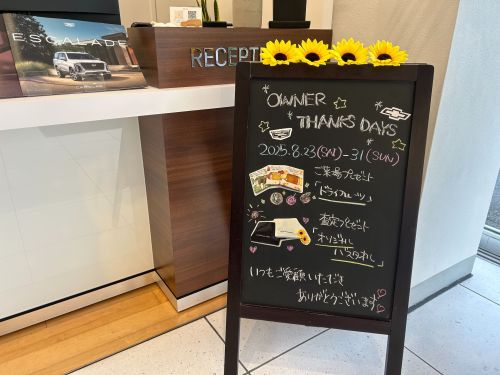 ESCALADE
RECEPT
OWNER
THANKS DAYS
2025.8.23(SAT)-31(SUN)
ご来場プレゼント
「ドライフルーツ」
査定プレゼント
「オリジナル
バスタオル」
いつもご愛顧いただき
ありがとうございます